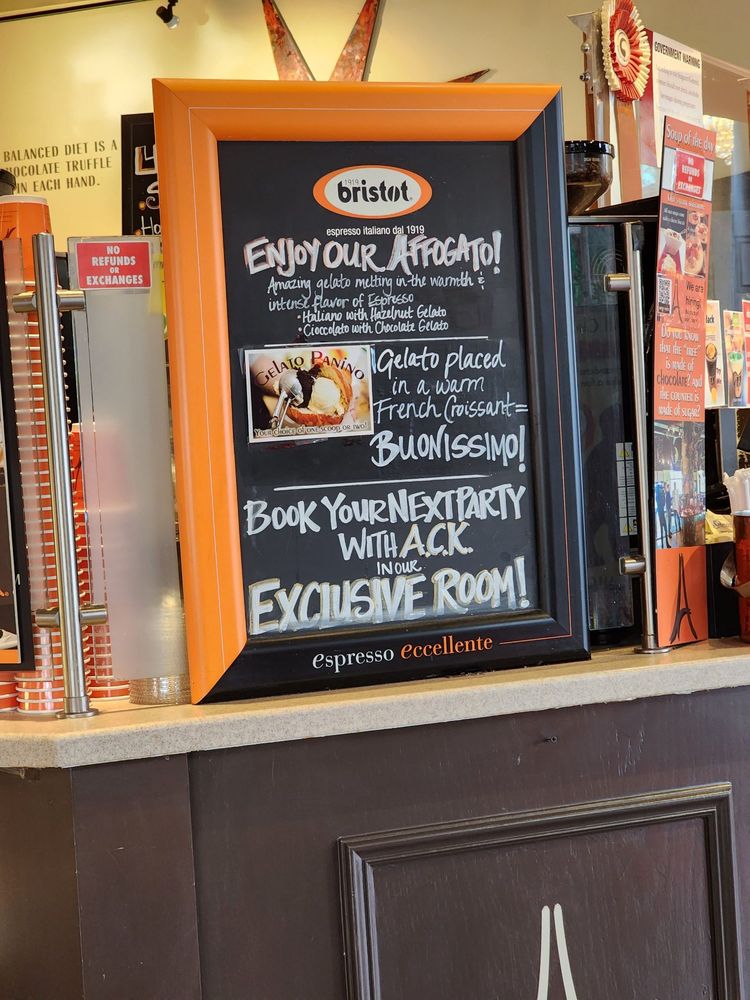 BALANCED DIET IS A
CHOCOLATE TRUFFLE
IN EACH HAND.
NO
REFUNDS
OR
EXCHANGES
1919
bristot
espresso italiano dal 1919
ENJOY OUR AFFOGATO!
Amazing gelato melting in the warmth &
intense flavor of Espresso
• Italiano with Hazelnut Gelato
• Cioccolato with Chocolate Gelato
GELATO PANINO
YOUR CHOICE OF ONE SCOOP OR TWO!
Gelato placed
in a warm
French Croissant=
BUONISSIMO!
BOOK YOUR NEXT PARTY
WITH A.C.K.
IN OUR
EXCLUSIVE ROOM!
espresso eccellente
GOVERNMENT WARNING
Soup of the day
NO
REFUNDS
OR
EXCHANGES
We are
hiring!
DO YOU KNOW
THAT THE "TREE"
IS MADE OF
CHOCOLATE? AND
THE COUNTER IS
MADE OF SUGAR!